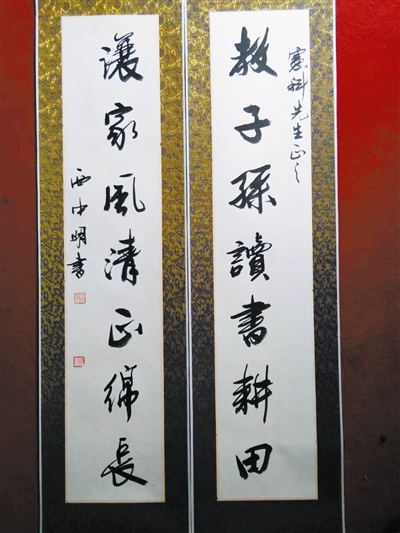 憲科先生正之
教子孫讀書耕田
讓家風清正綿長
明書